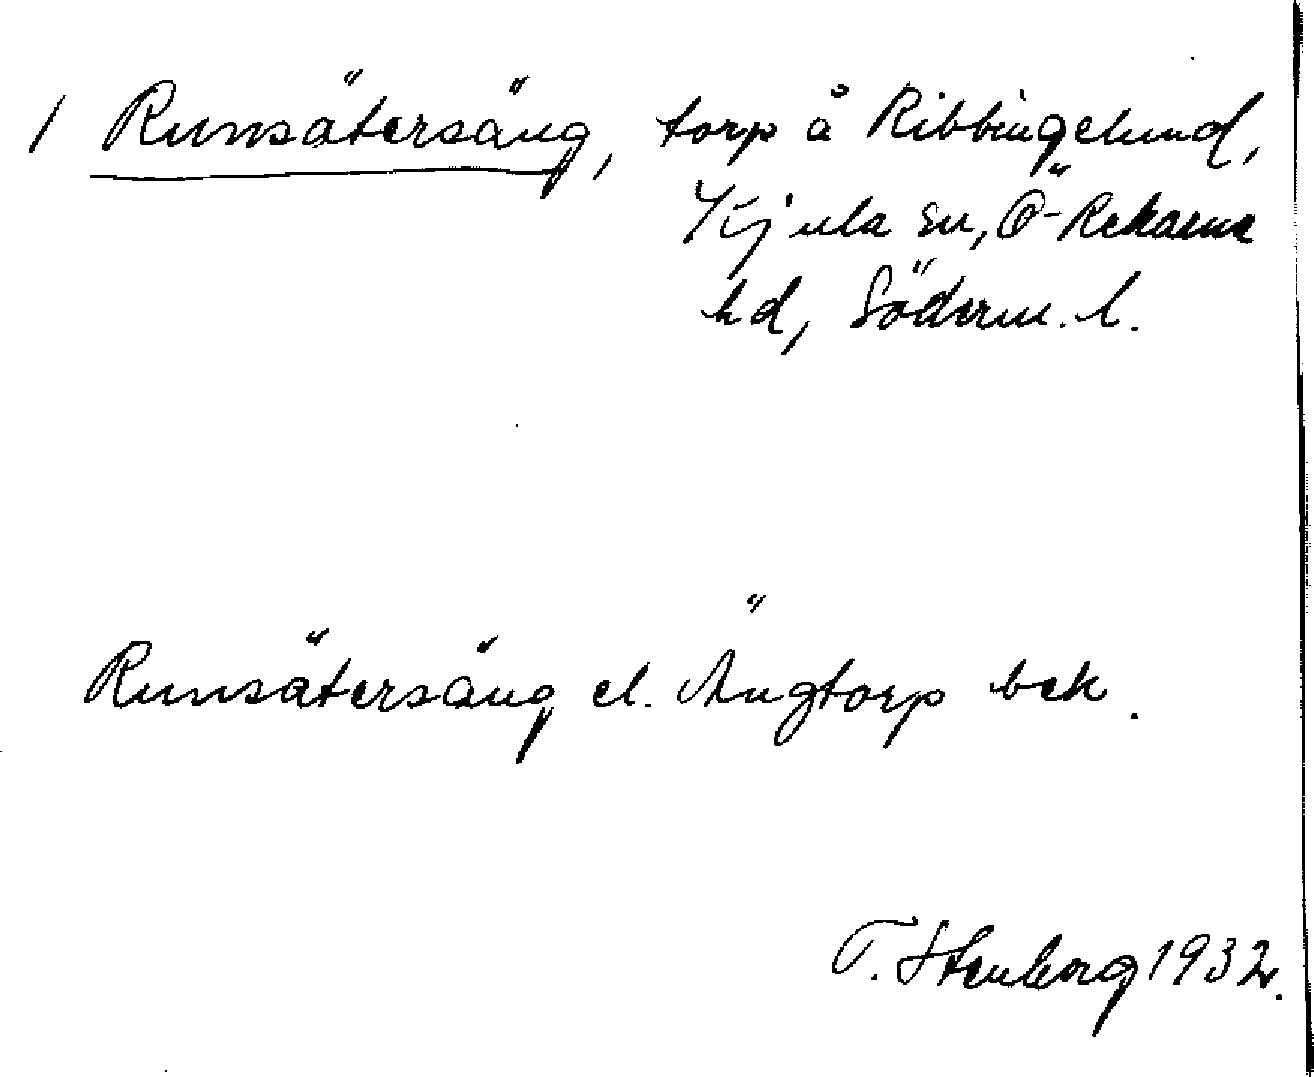 / Runsätersäng, torp å Ribbingelund,
Kjula sn, Ö-Rekarne
hd, Söderm. l.
Runsätersäng el. Ängtorp bek.
T. Stenborg 1932.